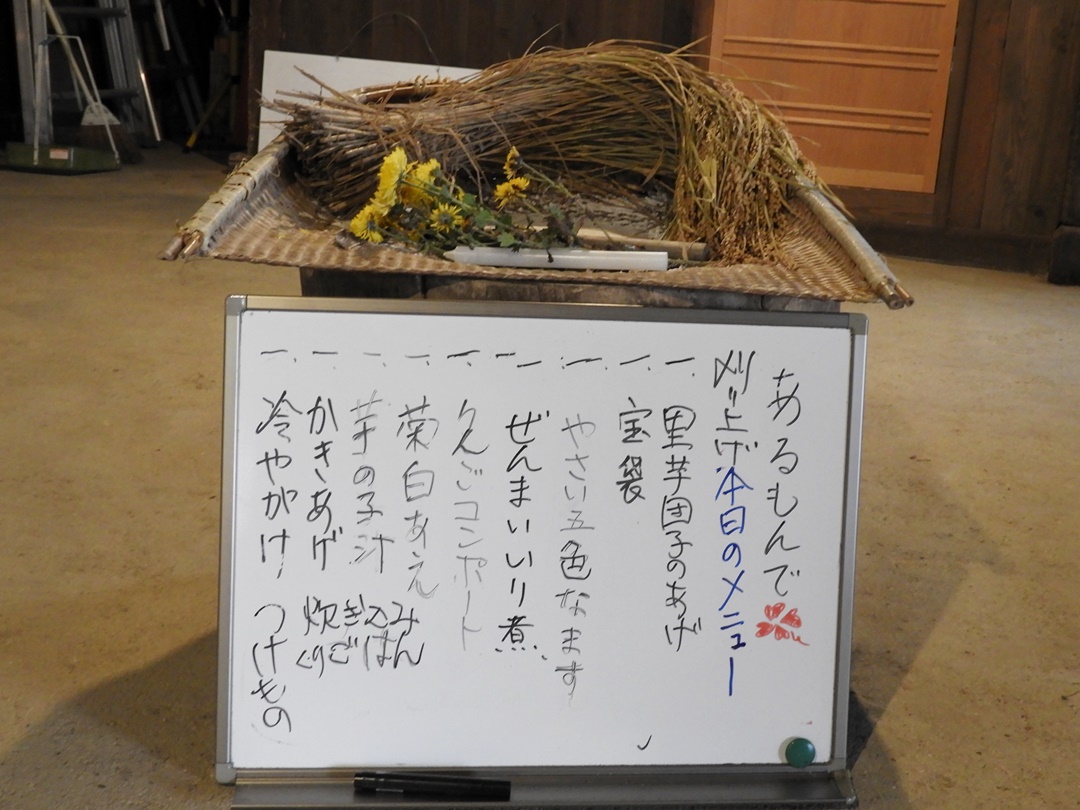 あるもんで
刈り上げ 本日のメニュー
一、里芋団子のあげ
一、宝袋
一、やさい五色なます
一、ぜんまいいり煮
一、りんごコンポート
一、菊白あえ
一、芋の子汁
一、かきあげ
一、冷やがけ
炊き込み
くりごはん
つけもの